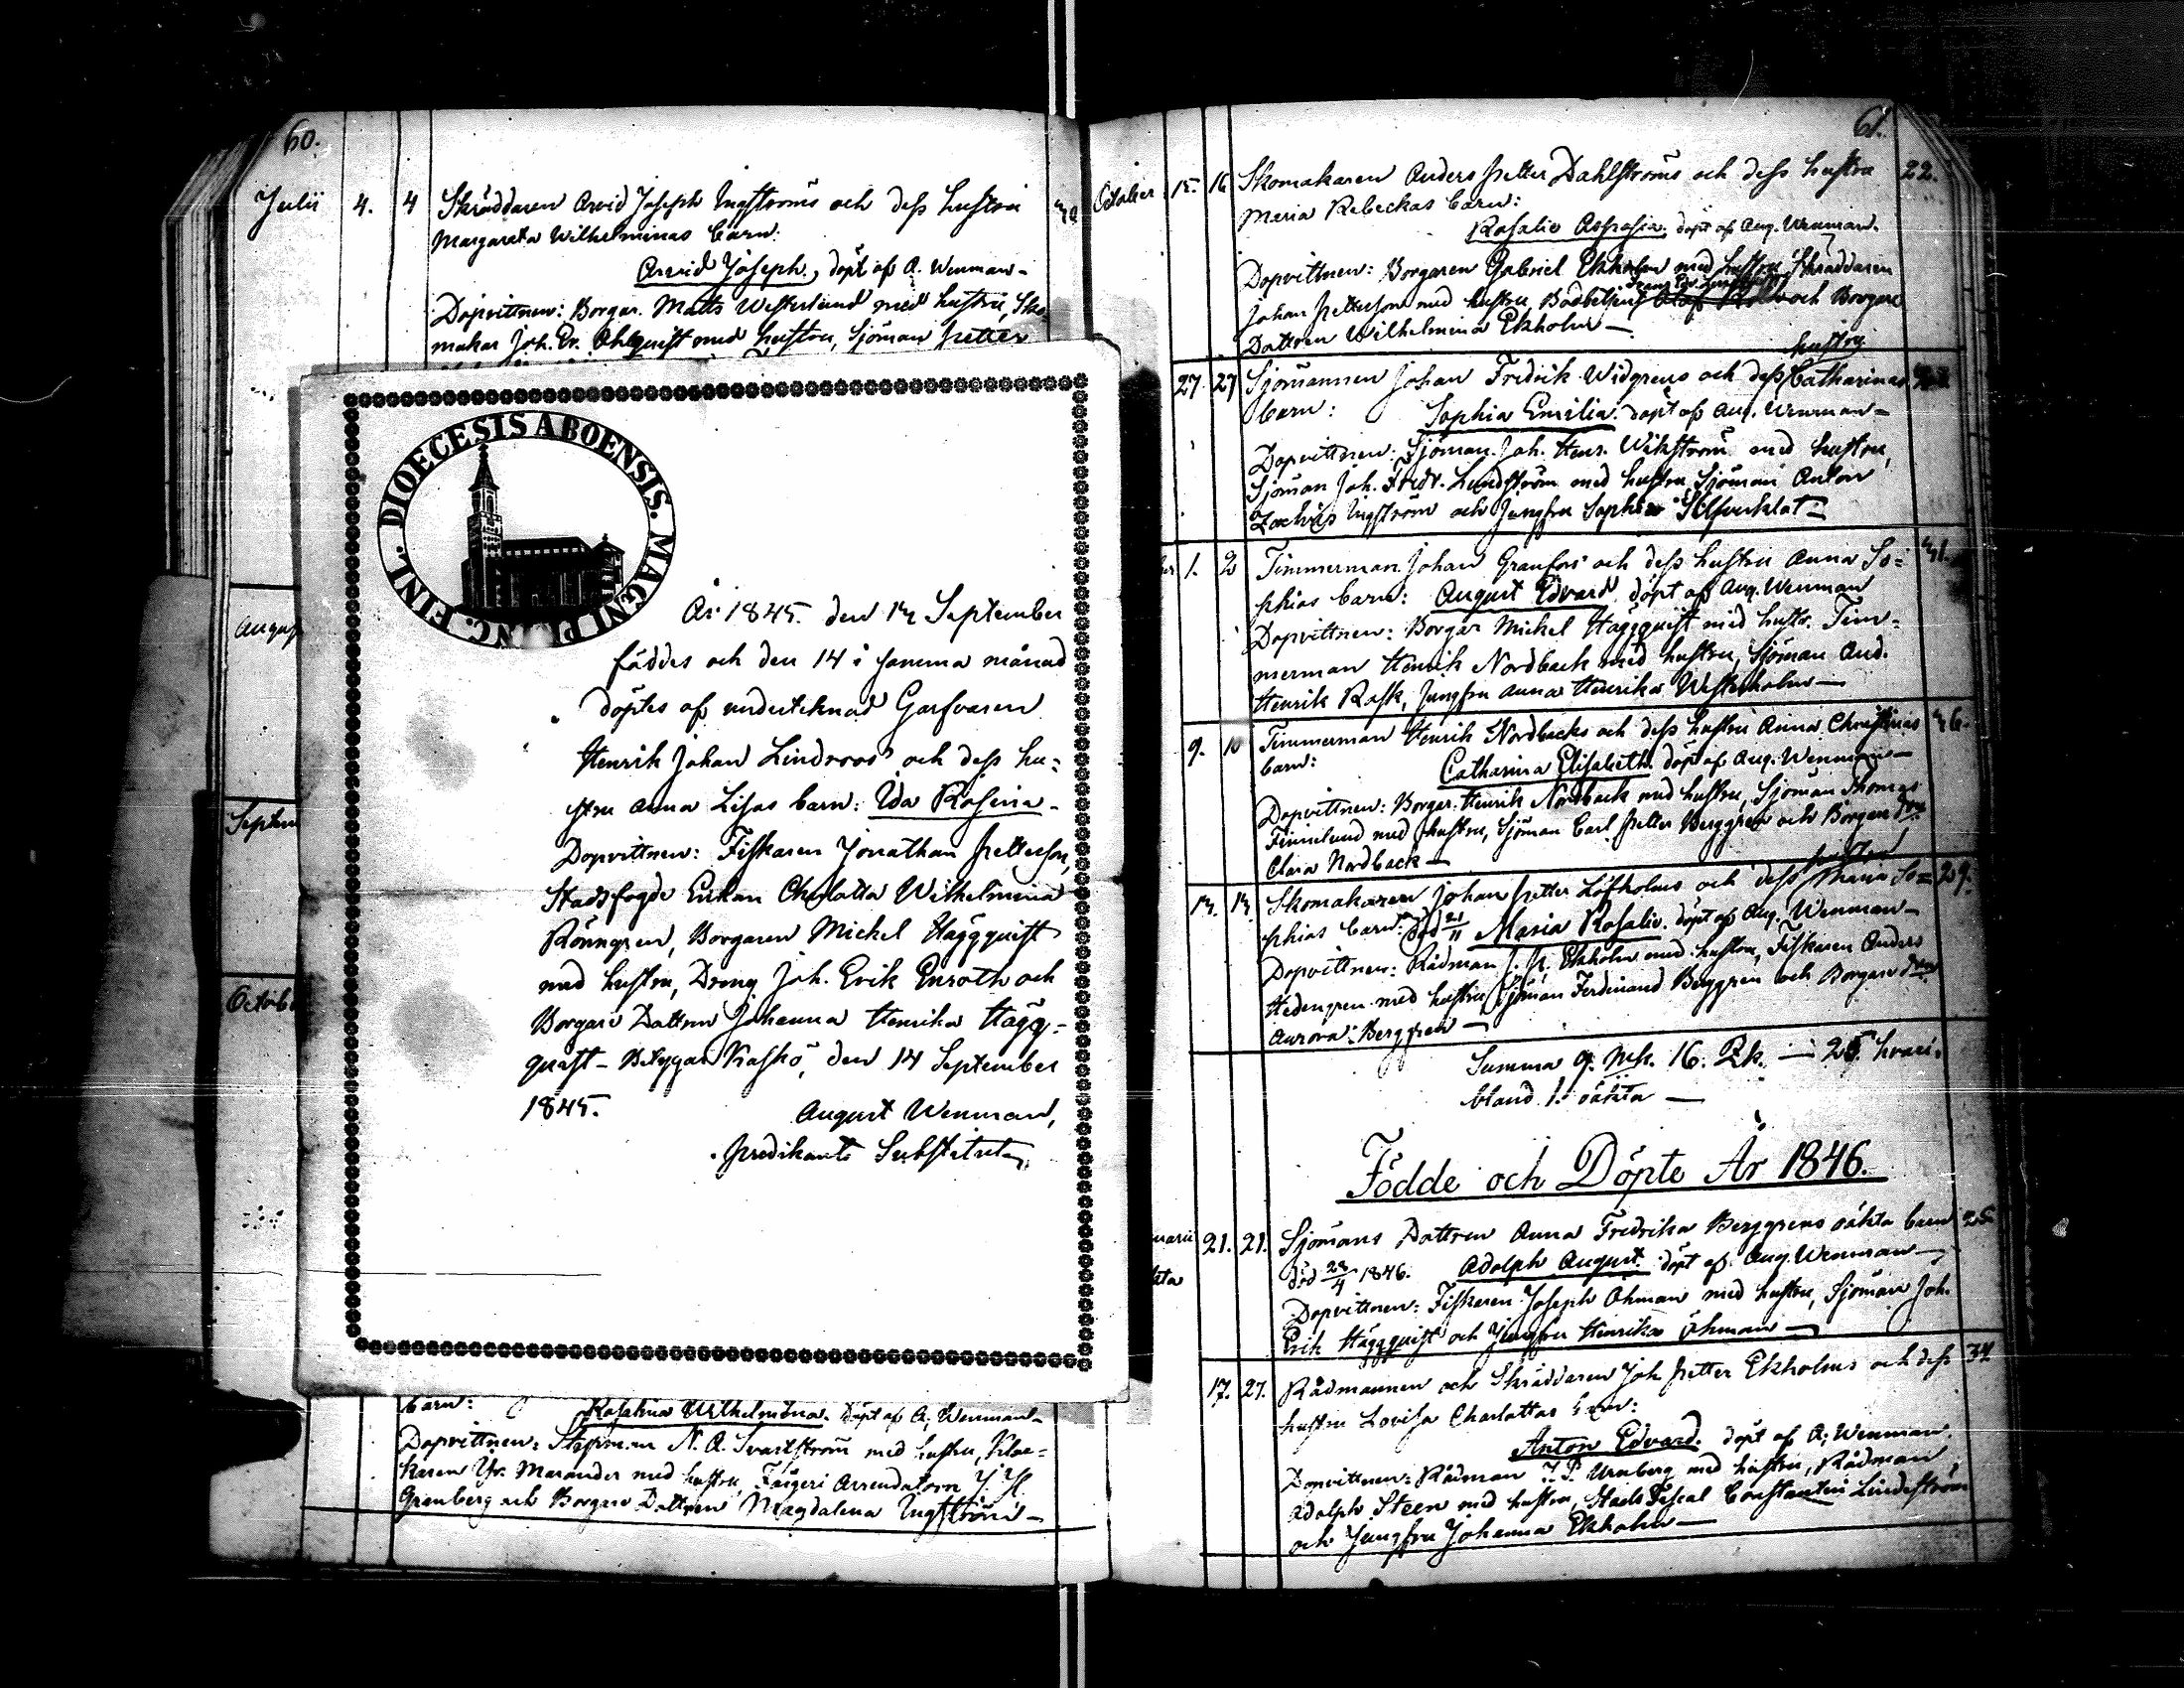 60.
Julii 4. 4 Skräddaren Arvid Joseph Ingströms och dess hustru
Margareta Wilhelminas barn:
Arvid Joseph, döpt af A. Wenman-
Dopvittnen: Borgar. Matts Westerlund med hustru, Sko-
makar Joh. Er. Öhlquist med hustru, Sjöman Petter
FINL. DIOECESIS ABOENSIS. MAGNI PRINC.
År 1845. den 12 September
föddes och den 14 i samma månad
döptes af undertecknad Garfvaren
Henrik Johan Lindroos och dess hu-
stru Anna Lisas barn: Ida Rosina-
Dopvittnen: Fiskaren Jonathan Petterson,
Stadsfogde Enkan Charlotta Wilhelmina
Rönngren, Borgaren Michel Häggquist
med hustru, Dreng Joh. Erik Enroth och
Borgare Dottren Johanna Henrika Hägg-
quist - Betygar Kaskö, den 14 September
1845. August Wenman,
Predikants Substitut
Septem
Octob
barn: Rosalina Wilhelmina. döpt af A. Wenman-
Dopvittnen: N. A. Svartström med hustru, Kloc-
karen Marander med hustru, Färgeri Arrendatorn
Granberg och Borgare Dottren Magdalena Ingström -
61.
October 15. 16 Skomakaren Anders Petter Dahlströms och dess hustru 22.
Maria Rebeckas barn:
Rosalie Aspasia. döpt af Aug. Wenman.
Dopvittnen: Borgaren Gabriel Ekholm med hustru, Skräddaren
Johan Petterson med hustru, och Borgare
Dottren Wilhelmina Ekholm -
hustru
27. 27 Sjömannen Johan Fredrik Widgrens och dess Catharinas
barn: Sophia Emilia. döpt af Aug. Wenman-
Dopvittnen: Sjöman Joh. Henr. Wikström med hustru,
Sjöman Joh. Fredr. Lundström med hustru Sjöman Anton
Ingström och Jungfru Sophia
1. 2 Timmerman Johan Granfors och dess hustru Anna So-
phias barn: August Edvard. döpt af Aug. Wenman
Dopvittnen: Borgar Michel Häggquist med hustr. Tim-
merman Henrik Nordback med hustru, Sjöman And.
Henrik Rask, Jungfru Anna Henrika Westerholm -
9. 10 Timmerman Henrik Nordbacks och dess hustru Anna Christinas
barn: Catharina Elisabeth. döpt af Aug. Wenman-
Dopvittnen: Borgar. Henrik Nordback med hustru, Sjöman Thomas
Finnilund med hustru, Sjöman Carl Petter Berggren och Borgare
Clara Nordback -
hustru
Skomakaren Johan Petter Löfholms och dess Maria So- 29.
phias barn: död 21/11 Maria Rosalie. döpt af Aug. Wenman-
Dopvittnen: Rådman J. P. Ekholm med hustru, Fiskaren Anders
Hedengren med hustru Sjöman Ferdinand Berggren och Borgare
Aurora Berggren -
Summa 9. Mk. 16. Qk. - 25. hvari-
bland 1. oäkta -
Födde och Döpte År 1846.
21. 21. Sjömans Dottren Anna Fredrika Berggrens oäkta barn
död 28/4 1846. Adolph August. döpt af Aug. Wenman -
Dopvittnen: Fiskaren Joseph Öhman med hustru, Sjöman Joh.
Erik Häggquist och Jungfru Henrika Öhman -
17. 27. Rådmannen och Skräddaren Joh. Petter Ekholms och dess 34.
hustru Lovisa Charlottas barn:
Anton Edvard. döpt af A. Wenman.
Dopvittnen: Rådman J. P. Urnberg med hustru, Rådman
Adolph Steen med hustru, Stads Fiscal Constantin Lindeström
och Jungfru Johanna Ekholm -